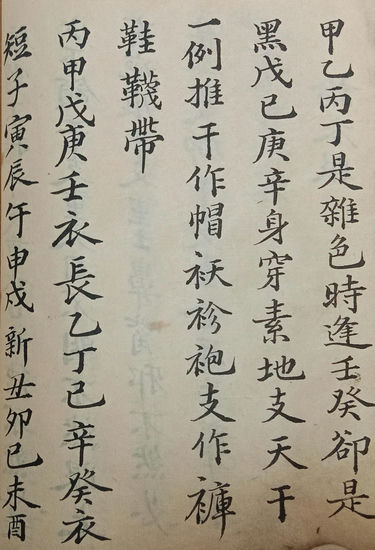 甲乙丙丁是雜色時逢壬癸卻是
黑戊己庚辛身穿素地支天干
一例推干作帽袄袗袍支作褲
鞋韈帶
丙甲戊庚壬衣長乙丁己辛癸衣
短子寅辰午申戌新丑卯巳未酉